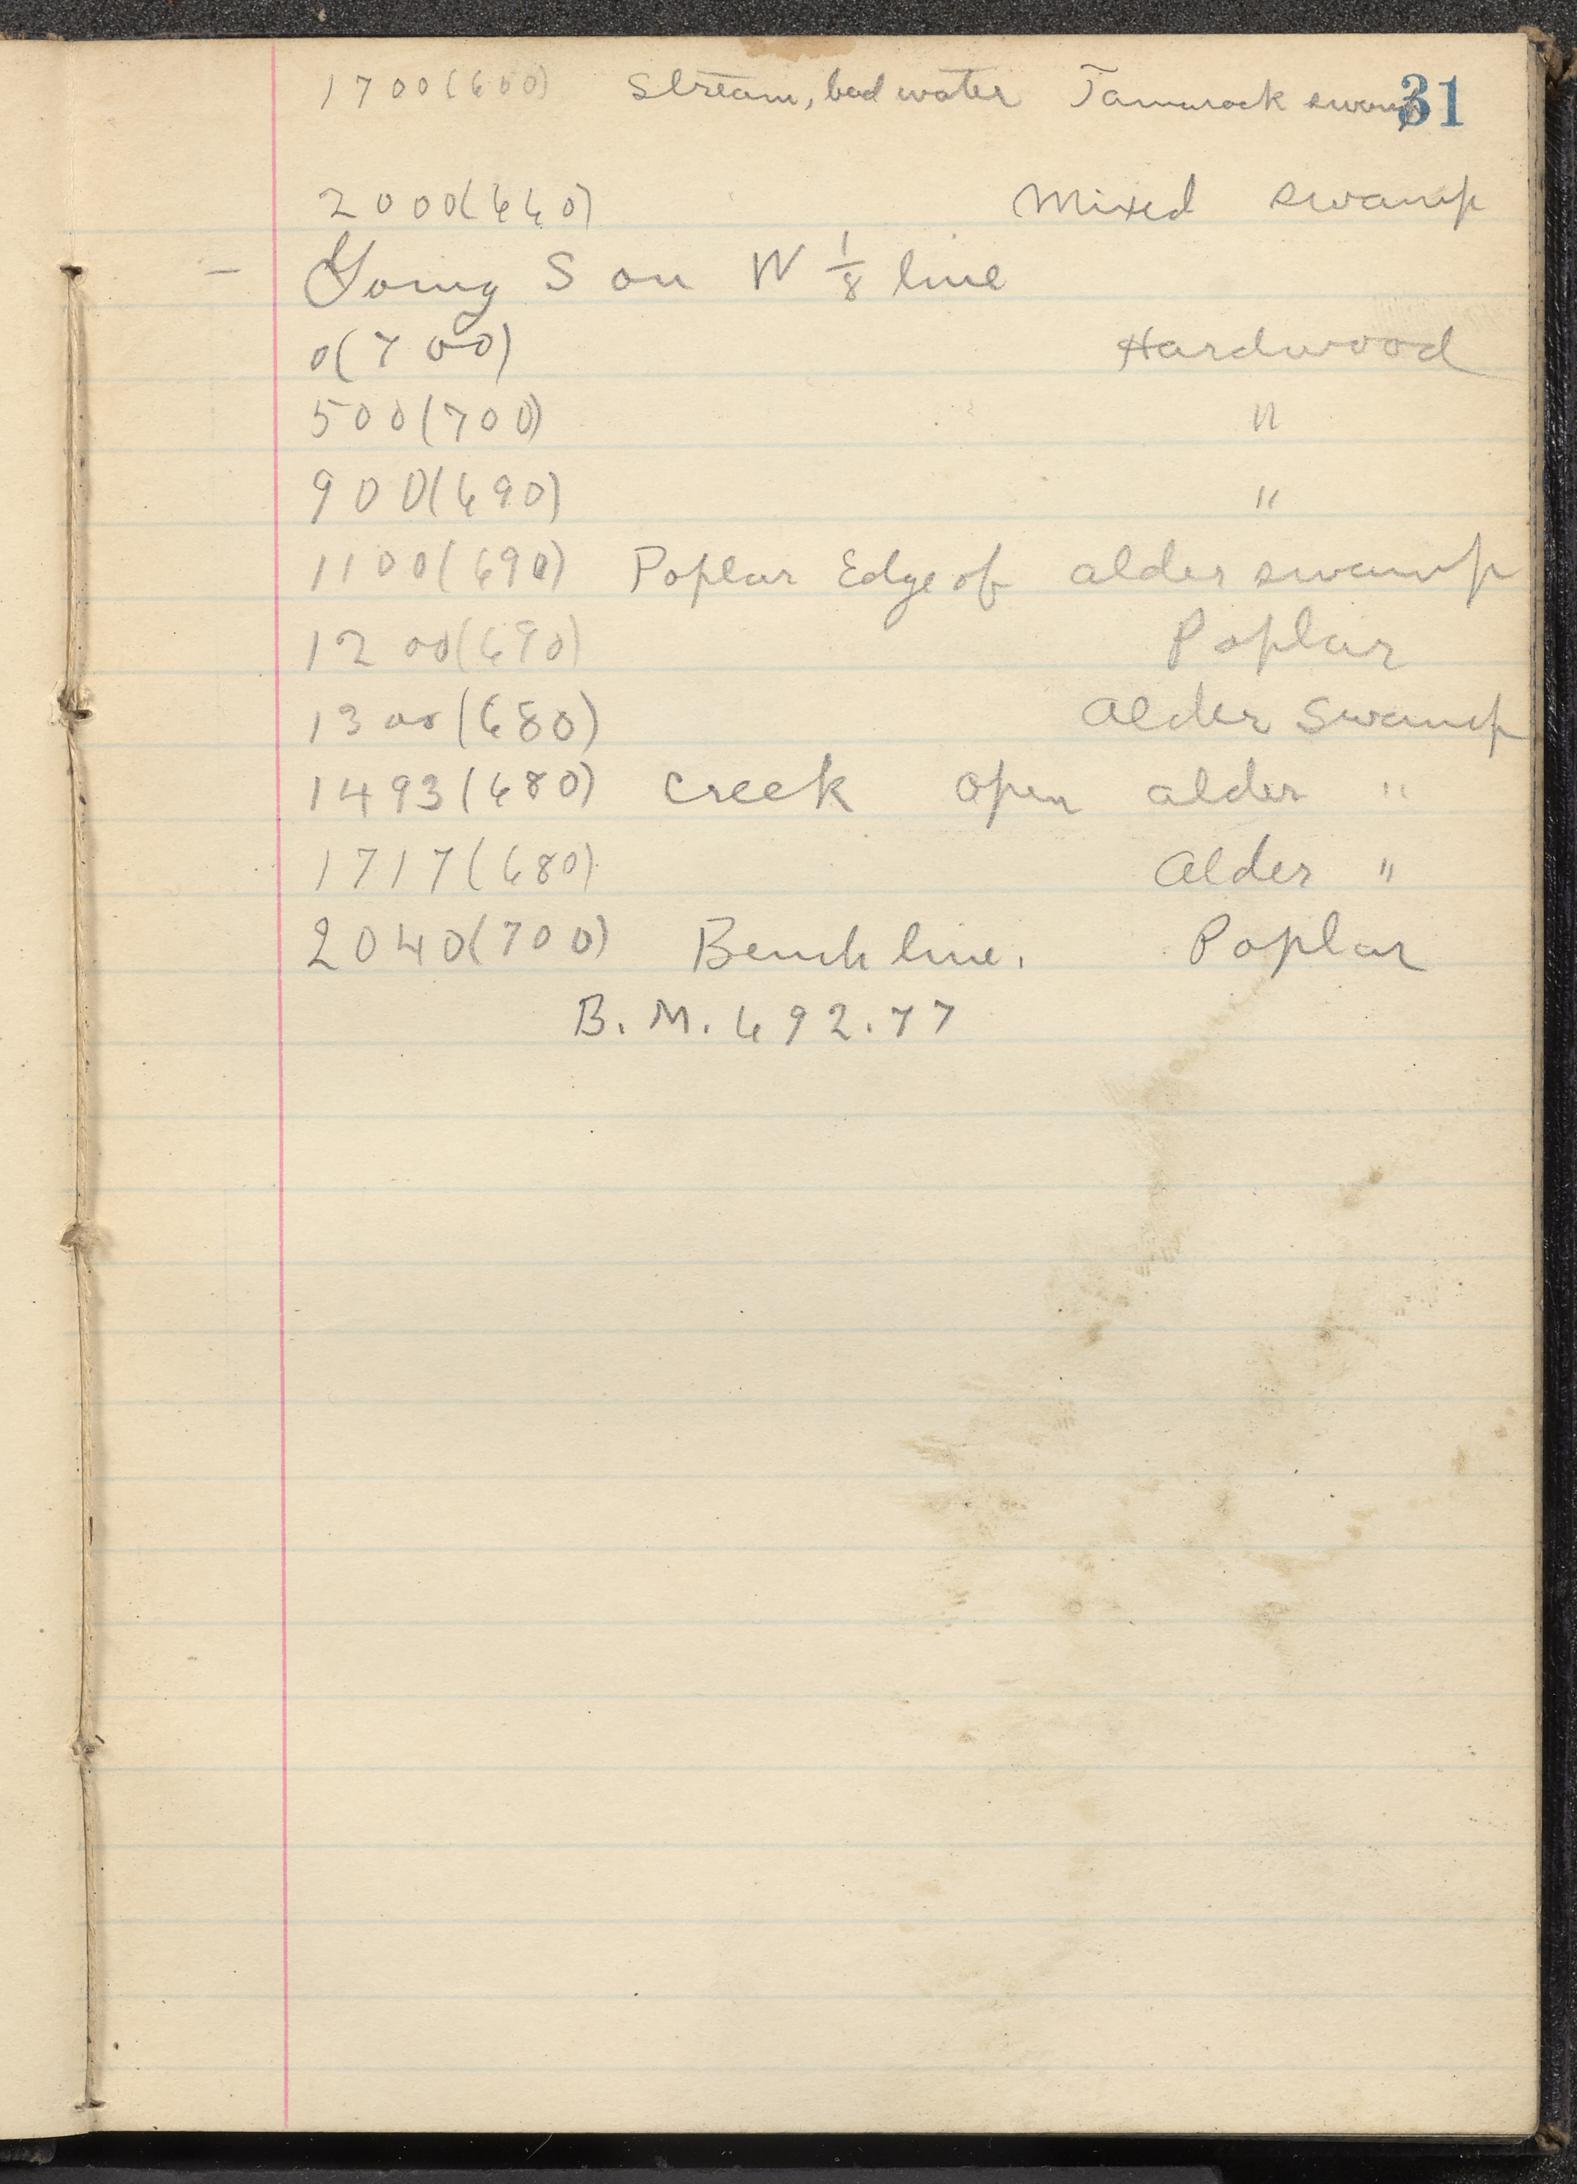 31
1700(660) Stream, bad water Tamarack swamp
2000(660) Mixed swamp
— Going S on W 1/8 line
0(700) Hardwood
500(700) "
900(690) "
1100(690) Poplar Edge of alder swamp
1200(690) Poplar
1300(680) Alder Swamp
1493(680) Creek open alder "
1717(680) Alder "
2040(700) Bench line. Poplar
B.M. 692.77